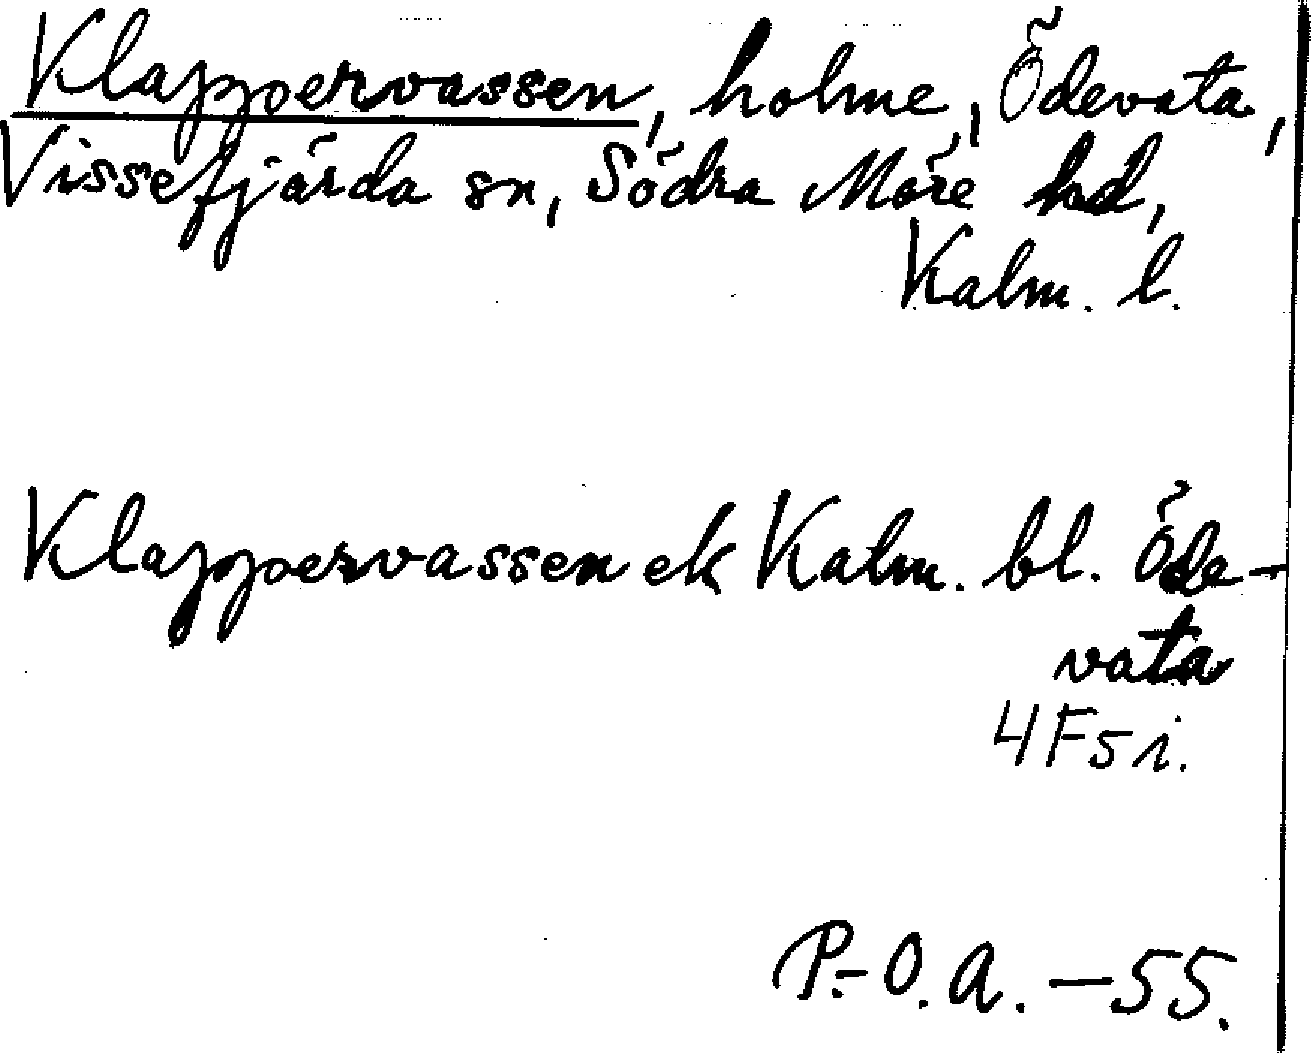 Klappervassen, holme, Ödevata,
Vissefjärda sn, Södra Möre hd,
Kalm. l.
Klappervassen ek Kalm. bl. Öde-
vata
4F5i.
P.-O.A.-55.